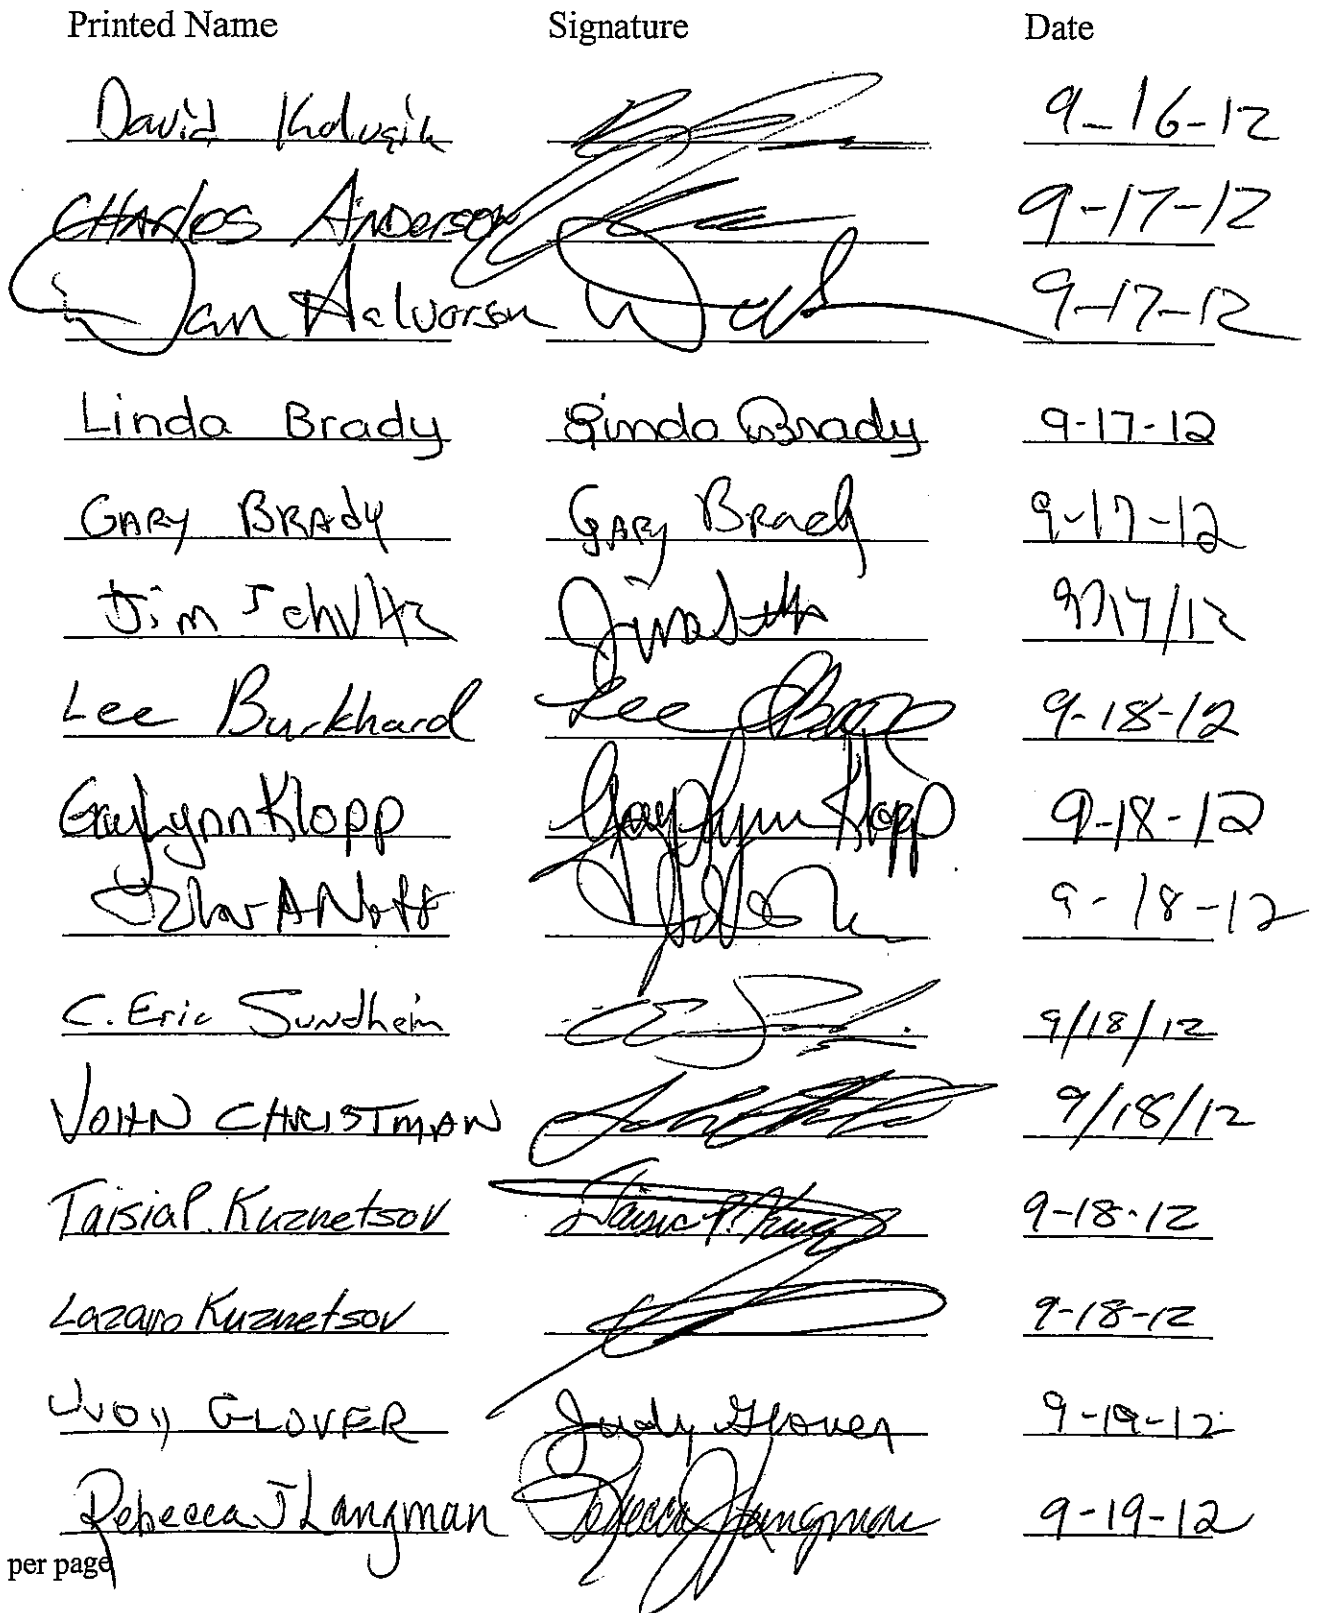 Printed Name Signature Date
David 9-16-12
CHArles AnDerson 9-17-12
Dan Halvorson 9-17-12
Linda Brady Linda Brady 9-17-12
GARy BRAdy GARy BRady 9-17-12
Jim Schultz Jim 9/17/12
Lee Burkhard Lee 9-18-12
GayLynn Klopp GayLynn Klopp 9-18-12
9-18-12
C. Eric Sundheim 9/18/12
JOHN CHRISTMAN John 9/18/12
Taisia P. Kuznetsov Taisia P. 9-18-12
Lazaro Kuznetsov 9-18-12
JUDy GLOVER Judy Glover 9-19-12
Rebecca J Langman Rebecca J Langman 9-19-12
per page